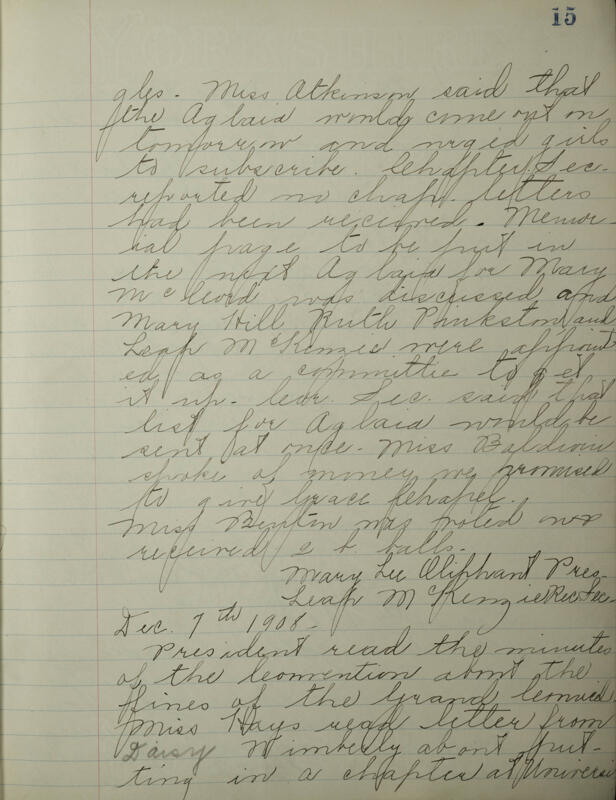 15
gles. Miss Atkinson said that
the Aglaia would come out on
tomorrow and urged girls
to subscribe. Chapter Sec.
reported no chap. letters
had been received. Memor-
ial page to be put in
the next Aglaia for Mary
McCleod was discussed and
Mary Hill Ruth Pinkston and
Leah McKenzie were appoint
ed as a committee to get
it up. Cor. Sec. said that
list for Aglaia would be
sent at once. Miss Baldwin
spoke of money we promised
to give Grace Chapel.
Miss Benton was voted
received 2 b balls.
Mary Lee Oliphant Pres.
Leah McKenzie Rec. Sec.
Dec. 7th 1908.
President read the minutes
of the Convention about the
fines of the Grand Council
Miss Hays read letter from
Daisy Wimberly about put-
ting in a chapter at Universi